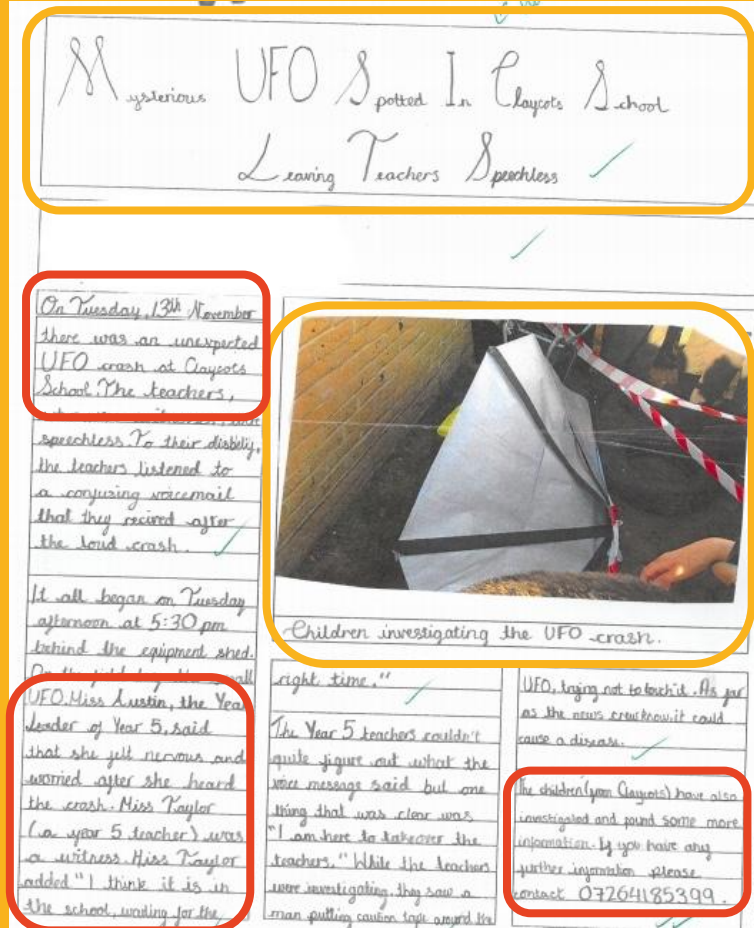 Mysterious UFO Spotted In Claycots School
Leaving Teachers Speechless
On Tuesday, 13th November
there was an unexpected
UFO crash at Claycots
School. The teachers,
speechless. To their disbeliy,
the teachers listened to
a confusing voicemail
that they recired after
the loud crash.
It all began on Tuesday
afternoon at 5:30 pm
behind the equipment shed.
UFO. Miss Austin, the Year
Leader of Year 5, said
that she felt nervous and
worried after she heard
the crash. Miss Taylor
(a year 5 teacher) was
a witness Miss Taylor
added "I think it is in
the school, waiting for the
Children investigating the UFO crash.
right time."
The Year 5 teachers couldn't
quite figure out what the
voice message said but one
thing that was clear was
"I am here to takeover the
teachers." While the teachers
were investigating, they saw a
man putting caution tape around the
UFO, trying not to touch it. As far
as the news crew know, it could
cause a disease.
The children (from Claycots) have also
investigated and found some more
information. If you have any
further information please
contact 07264185399.